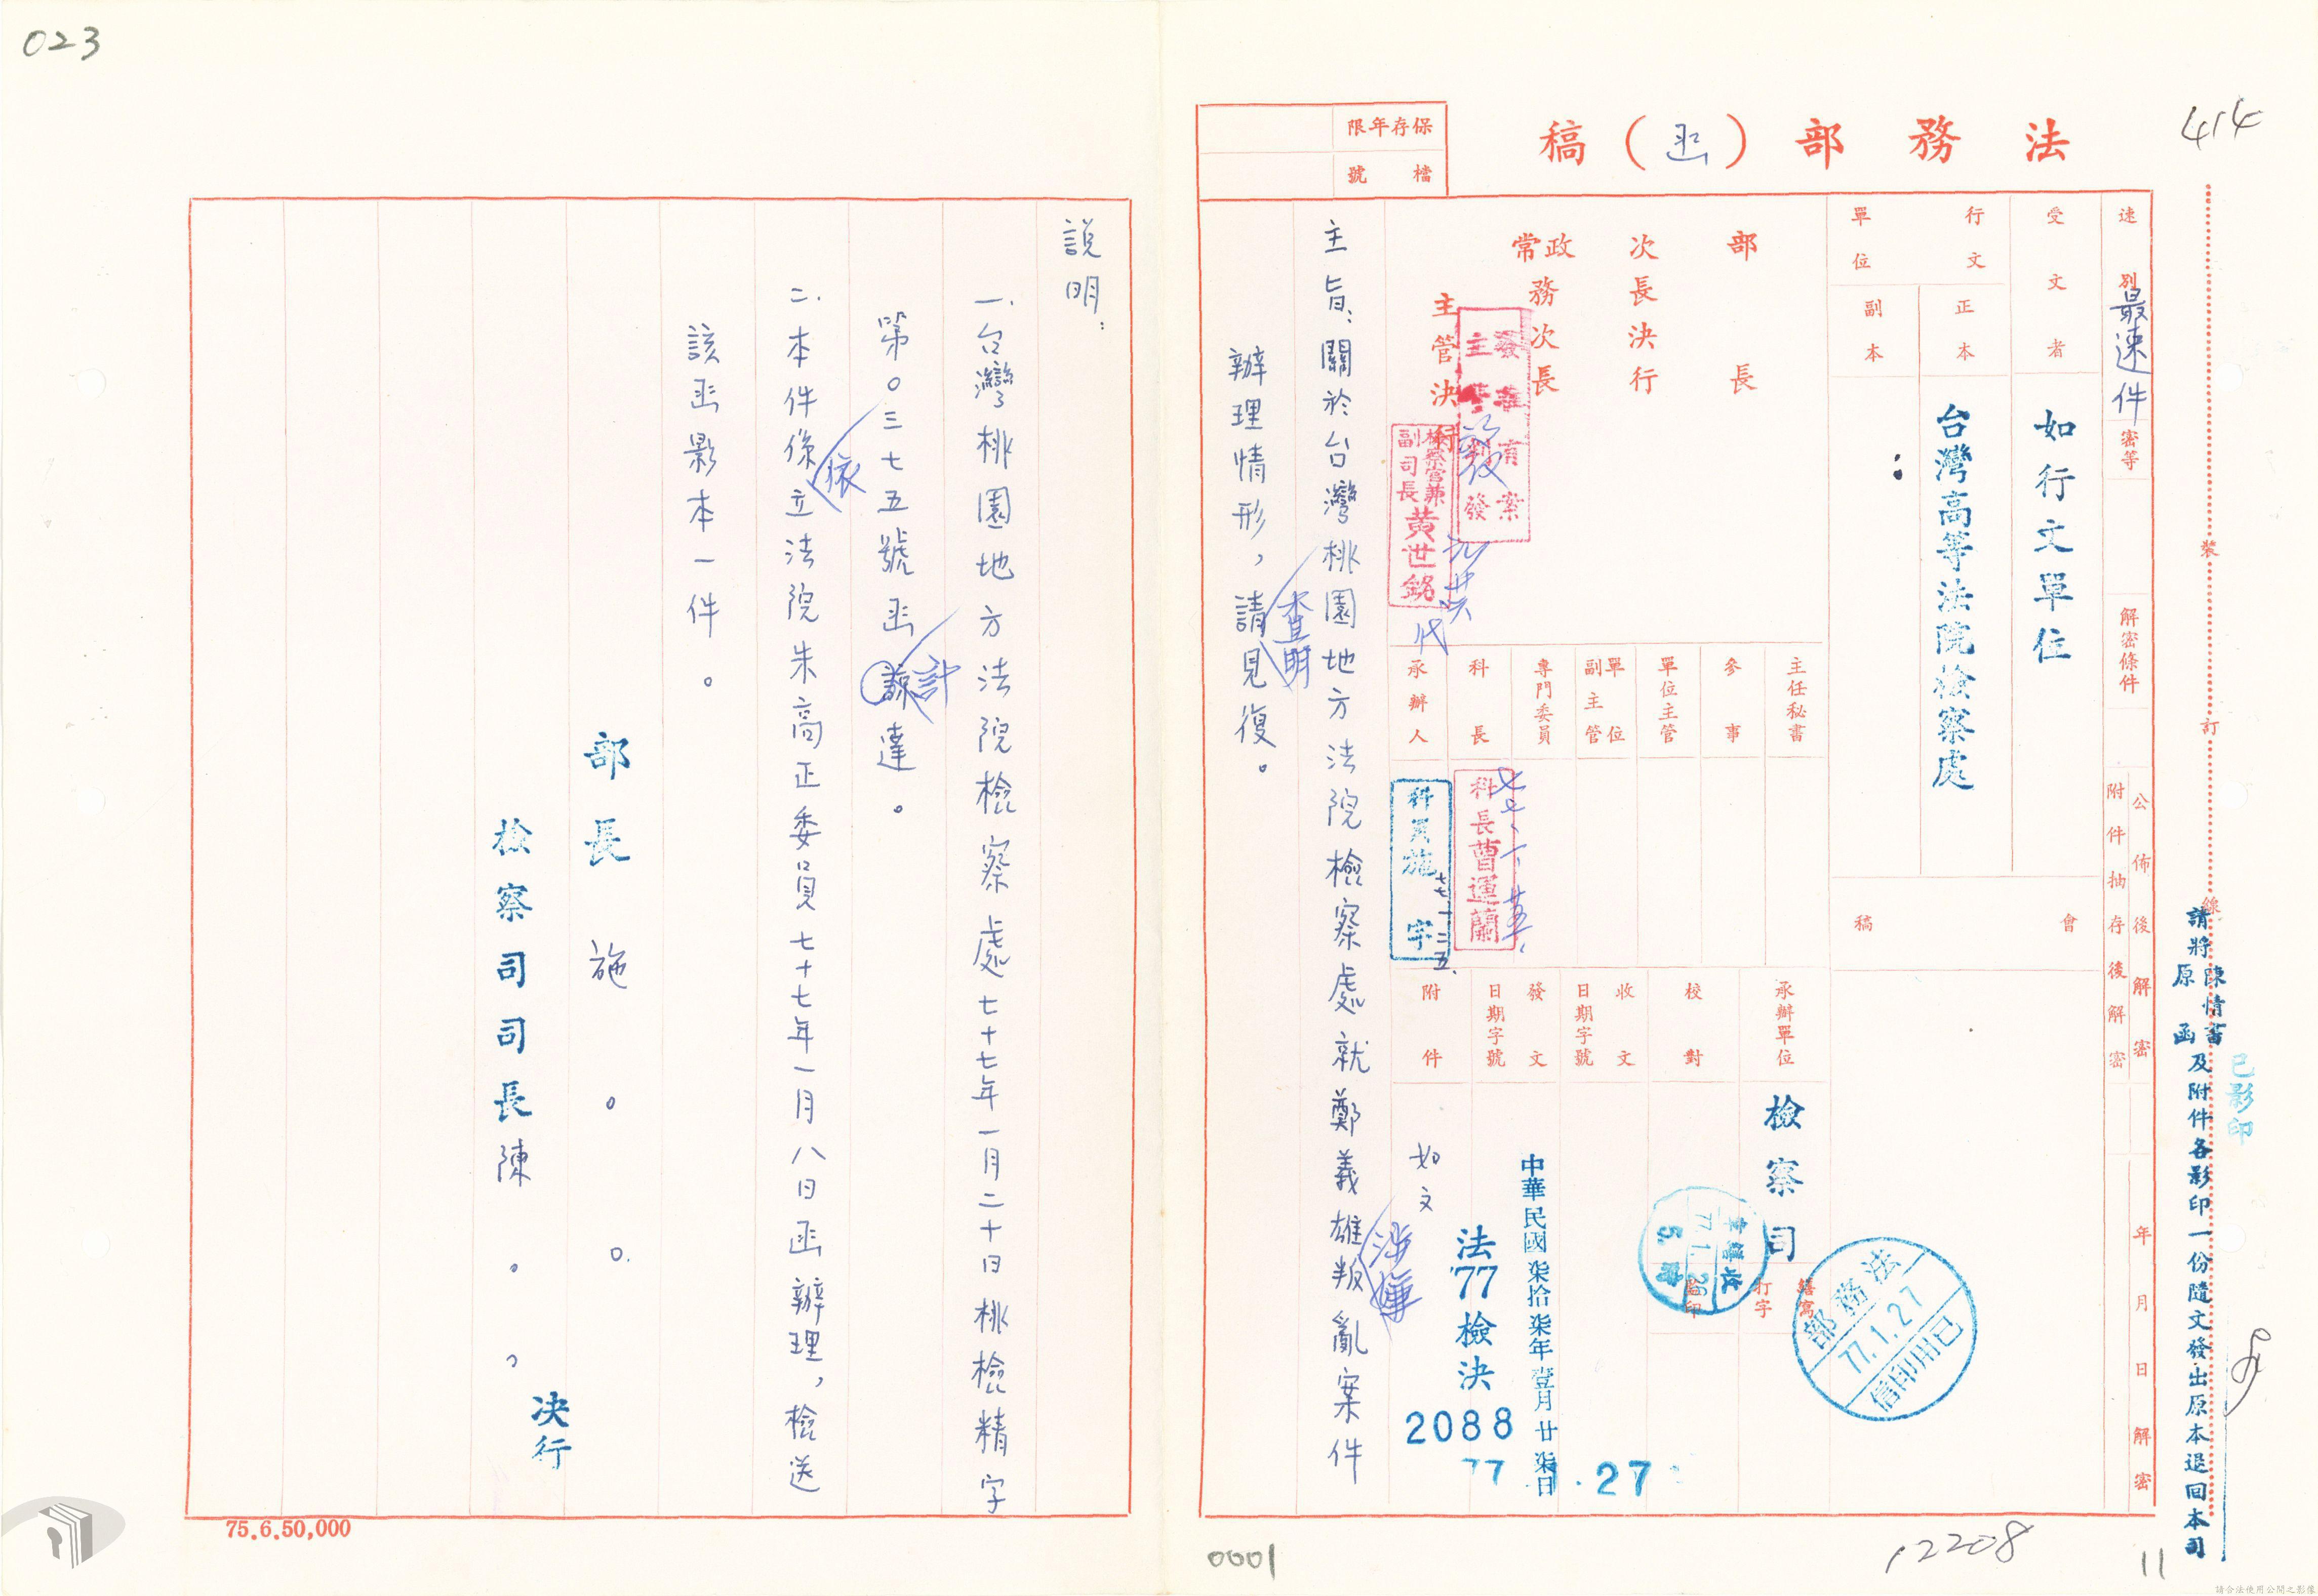 023
414
法務部(函)稿
保存年限
檔號
速別
最速件
密等
解密條件
公佈後解密
附件抽存後解密
年月日解密
受文者
如行文單位
行文單位
正本
台灣高等法院檢察處
副本
會稿
部長
次長決行
政務次長
常務次長
主管決行
檢察官兼副司長黃世銘
代
主任秘書
參事
單位主管
單位副主管
專門委員
科長
承辦人
科長曹運蘭
科員施字
七七、一、二五、
承辦單位
檢察司
校對
繕寫
打字
監印
收文日期字號
發文日期字號
附件
如文
中華民國柒拾柒年壹月廿柒日
法77檢決
2088
77 1.27
法務部
77.1.27
已用印信
主旨:關於台灣桃園地方法院檢察處就鄭義雄涉嫌叛亂案件
辦理情形,請查明見復。
說明:
一、台灣桃園地方法院檢察處七十七年一月二十日桃檢精字
第○三七五號函諒計達。
二、本件係依立法院朱高正委員七十七年一月八日函辦理,檢送
該函影本一件。
部長 施。。
檢察司司長陳。。決行
裝訂線
請將陳情書原函及附件各影印一份隨文發出原本退回本司
已影印
75.6.50,000
0001
12208
11
請合法使用公開之影像